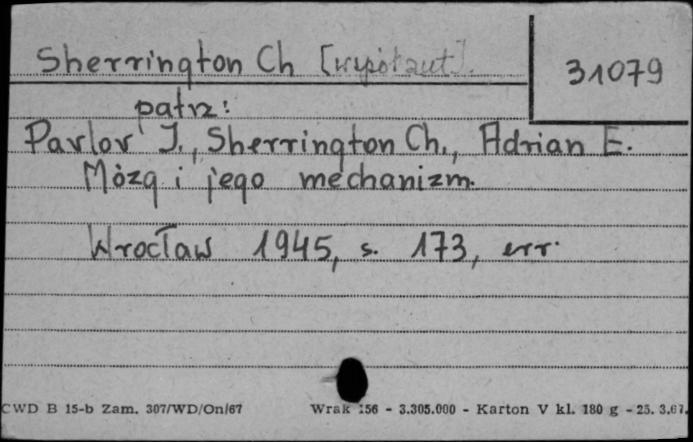 Sherrington Ch [współaut].
31079
patrz:
Pavlov J., Sherrington Ch., Adrian E.
Mózg i jego mechanizm.
Wrocław 1945, s. 173, err.
CWD B 15-b Zam. 307/WD/On/67 Wrak 156 - 3.305.000 - Karton V kl. 180 g - 25. 3.67.